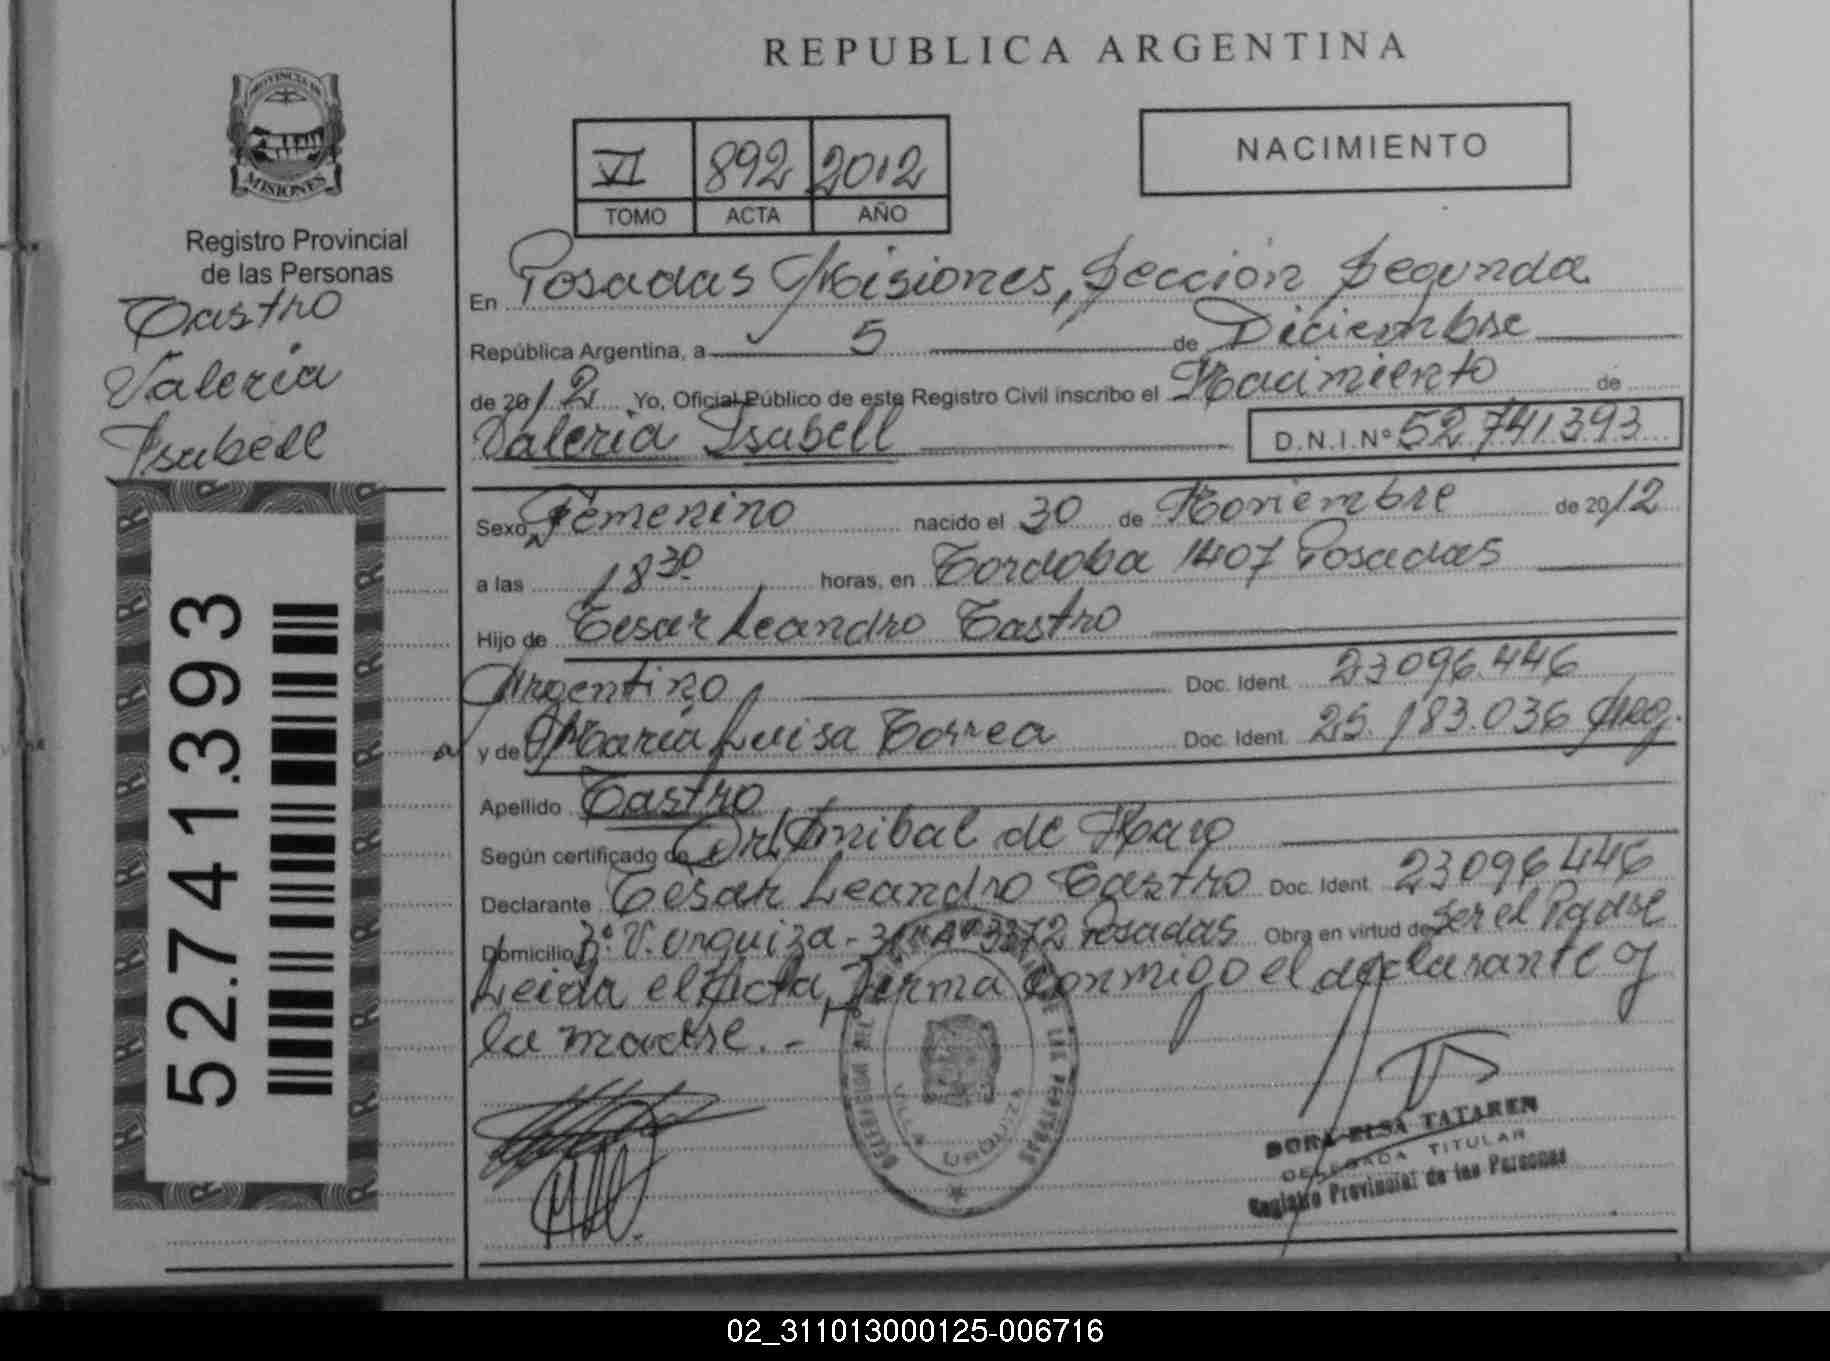 REPUBLICA ARGENTINA
PROVINCIA DE
MISIONES
Registro Provincial
de las Personas
Castro
Valeria
Isabell
52.741.393
VI 892 2012
TOMO ACTA AÑO
NACIMIENTO
En Posadas Misiones, Sección Segunda
República Argentina, a 5 de Diciembre
de 2012 Yo, Oficial Público de este Registro Civil inscribo el Nacimiento de
Valeria Isabell D.N.I.Nº 52.741.393
Sexo Femenino nacido el 30 de Noviembre de 2012
a las 18 30 horas, en Cordoba 1407 Posadas
Hijo de Cesar Leandro Castro
Argentino Doc. Ident. 23096.446
y de Maria Luisa Correa Doc. Ident. 25.183.036 Arg.
Apellido Castro
Según certificado de Dr. Anibal de Haro
Declarante Cesar Leandro Castro Doc. Ident 23096446
Domicilio Bº V. Urquiza - 3372 Posadas Obra en virtud de Ser el Padre
Leida el Acta, Firma conmigo el declarante y
la madre. -
DE LAS PERSONAS
VILLA URQUIZA
DORA ELSA TATAREN
DELEGADA TITULAR
Registro Provincial de las Personas
02_311013000125-006716